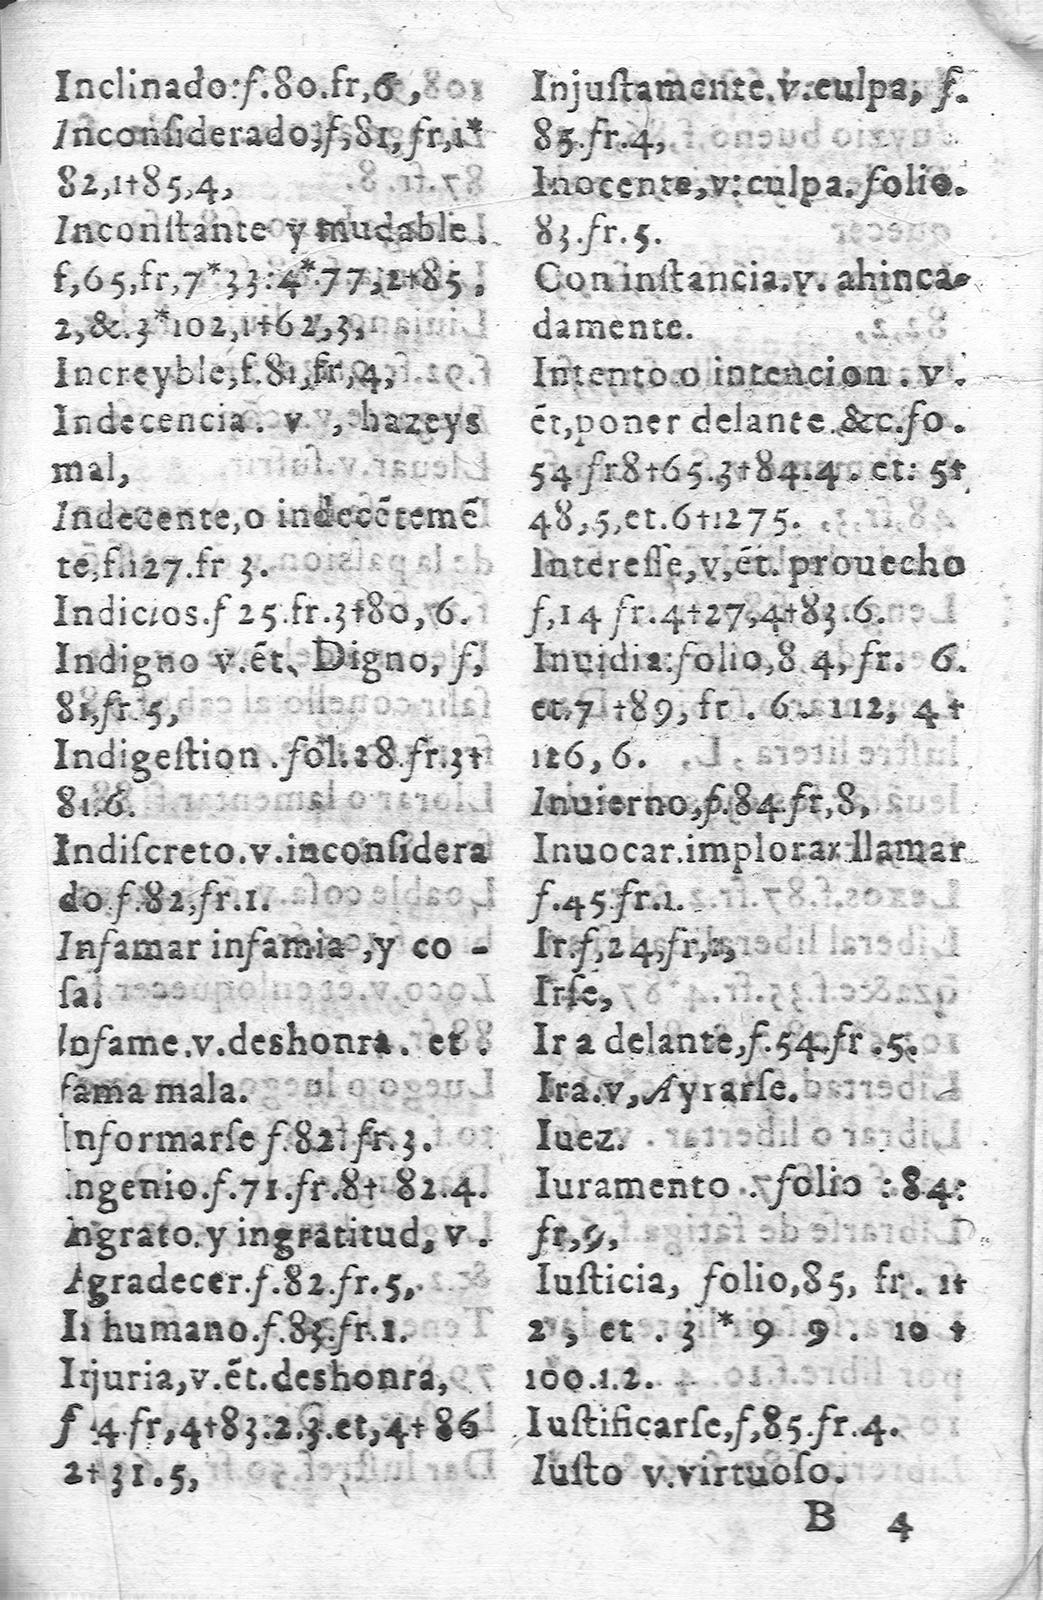 Inclinado:f.80.fr,6,
Inconſiderado,f,81,fr,1*
82,1†85,4,
Inconſtante y mudable.
f,65,fr,7*33:4*77,2†85,
2,&.3*102,1†62,3,
Increyble,f.81,fr,4,
Indecencia. v , hazeys
mal,
Indecente,o indecētemē
te,f.127.fr 3.
Indicios.f 25.fr.3†80,6.
Indigno v.ēt. Digno, f,
81,fr.5,
Indigeſtion.fol.28.fr.3†
81.6.
Indiſcreto.v.inconſidera
do.f.82,fr.1.
Infamar infamia ,y co -
ſa.
Infame.v.deshonra. et.
fama mala.
Informarſe f.82.fr.3.
Ingenio.f.71.fr.8† 82.4.
Ingrato.y ingratitud, v.
Agradecer.f.82.fr.5,
In humano.f.83.fr.1.
Injuria,v.ēt.deshonra,
f 4.fr,4†83.2.3.et,4†86
2†31.5,
Injuſtamente.v.culpa, f.
85.fr.4,
Inocente,v:culpa.folio.
83.fr.5.
Con inſtancia.v. ahinca-
damente.
Intento o intencion. v.
ēt,poner delante.&c.fo.
54 fr8†65.3†84.4. et: 5†
48,5,et.6†1275.
Intereſſe,v,ēt. prouecho
f,14 fr.4†27,4†83.6.
Inuidia:folio,84,fr. 6.
et.7 †89,fr. 6. 112, 4†
116,6.
Inuierno,f.84 fr,8,
Inuocar.implorar llamar
f.45.fr.1.
Ir.f,24,fr,2,
Irſe,
Ir a delante,f.54.fr.5.
Ira.v,Ayrarſe.
Iuez.
Iuramento . folio :84:
fr,9,
Iuſticia, folio,85, fr. 1†
2, et. 3 * 9 9. 10 †
100.1.2.
Iuſtificarſe,f,85.fr.4.
Iuſto v.virtuoſo.
B 4